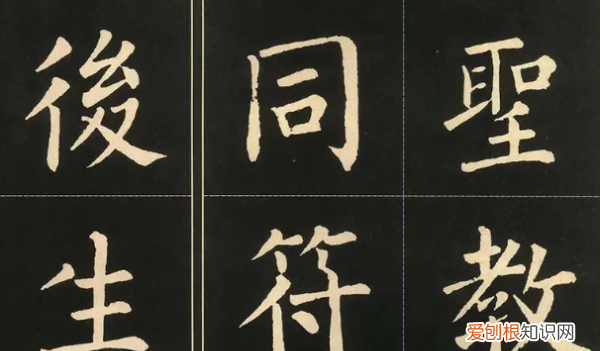 聖教
同符
後生
爱刨根知识网